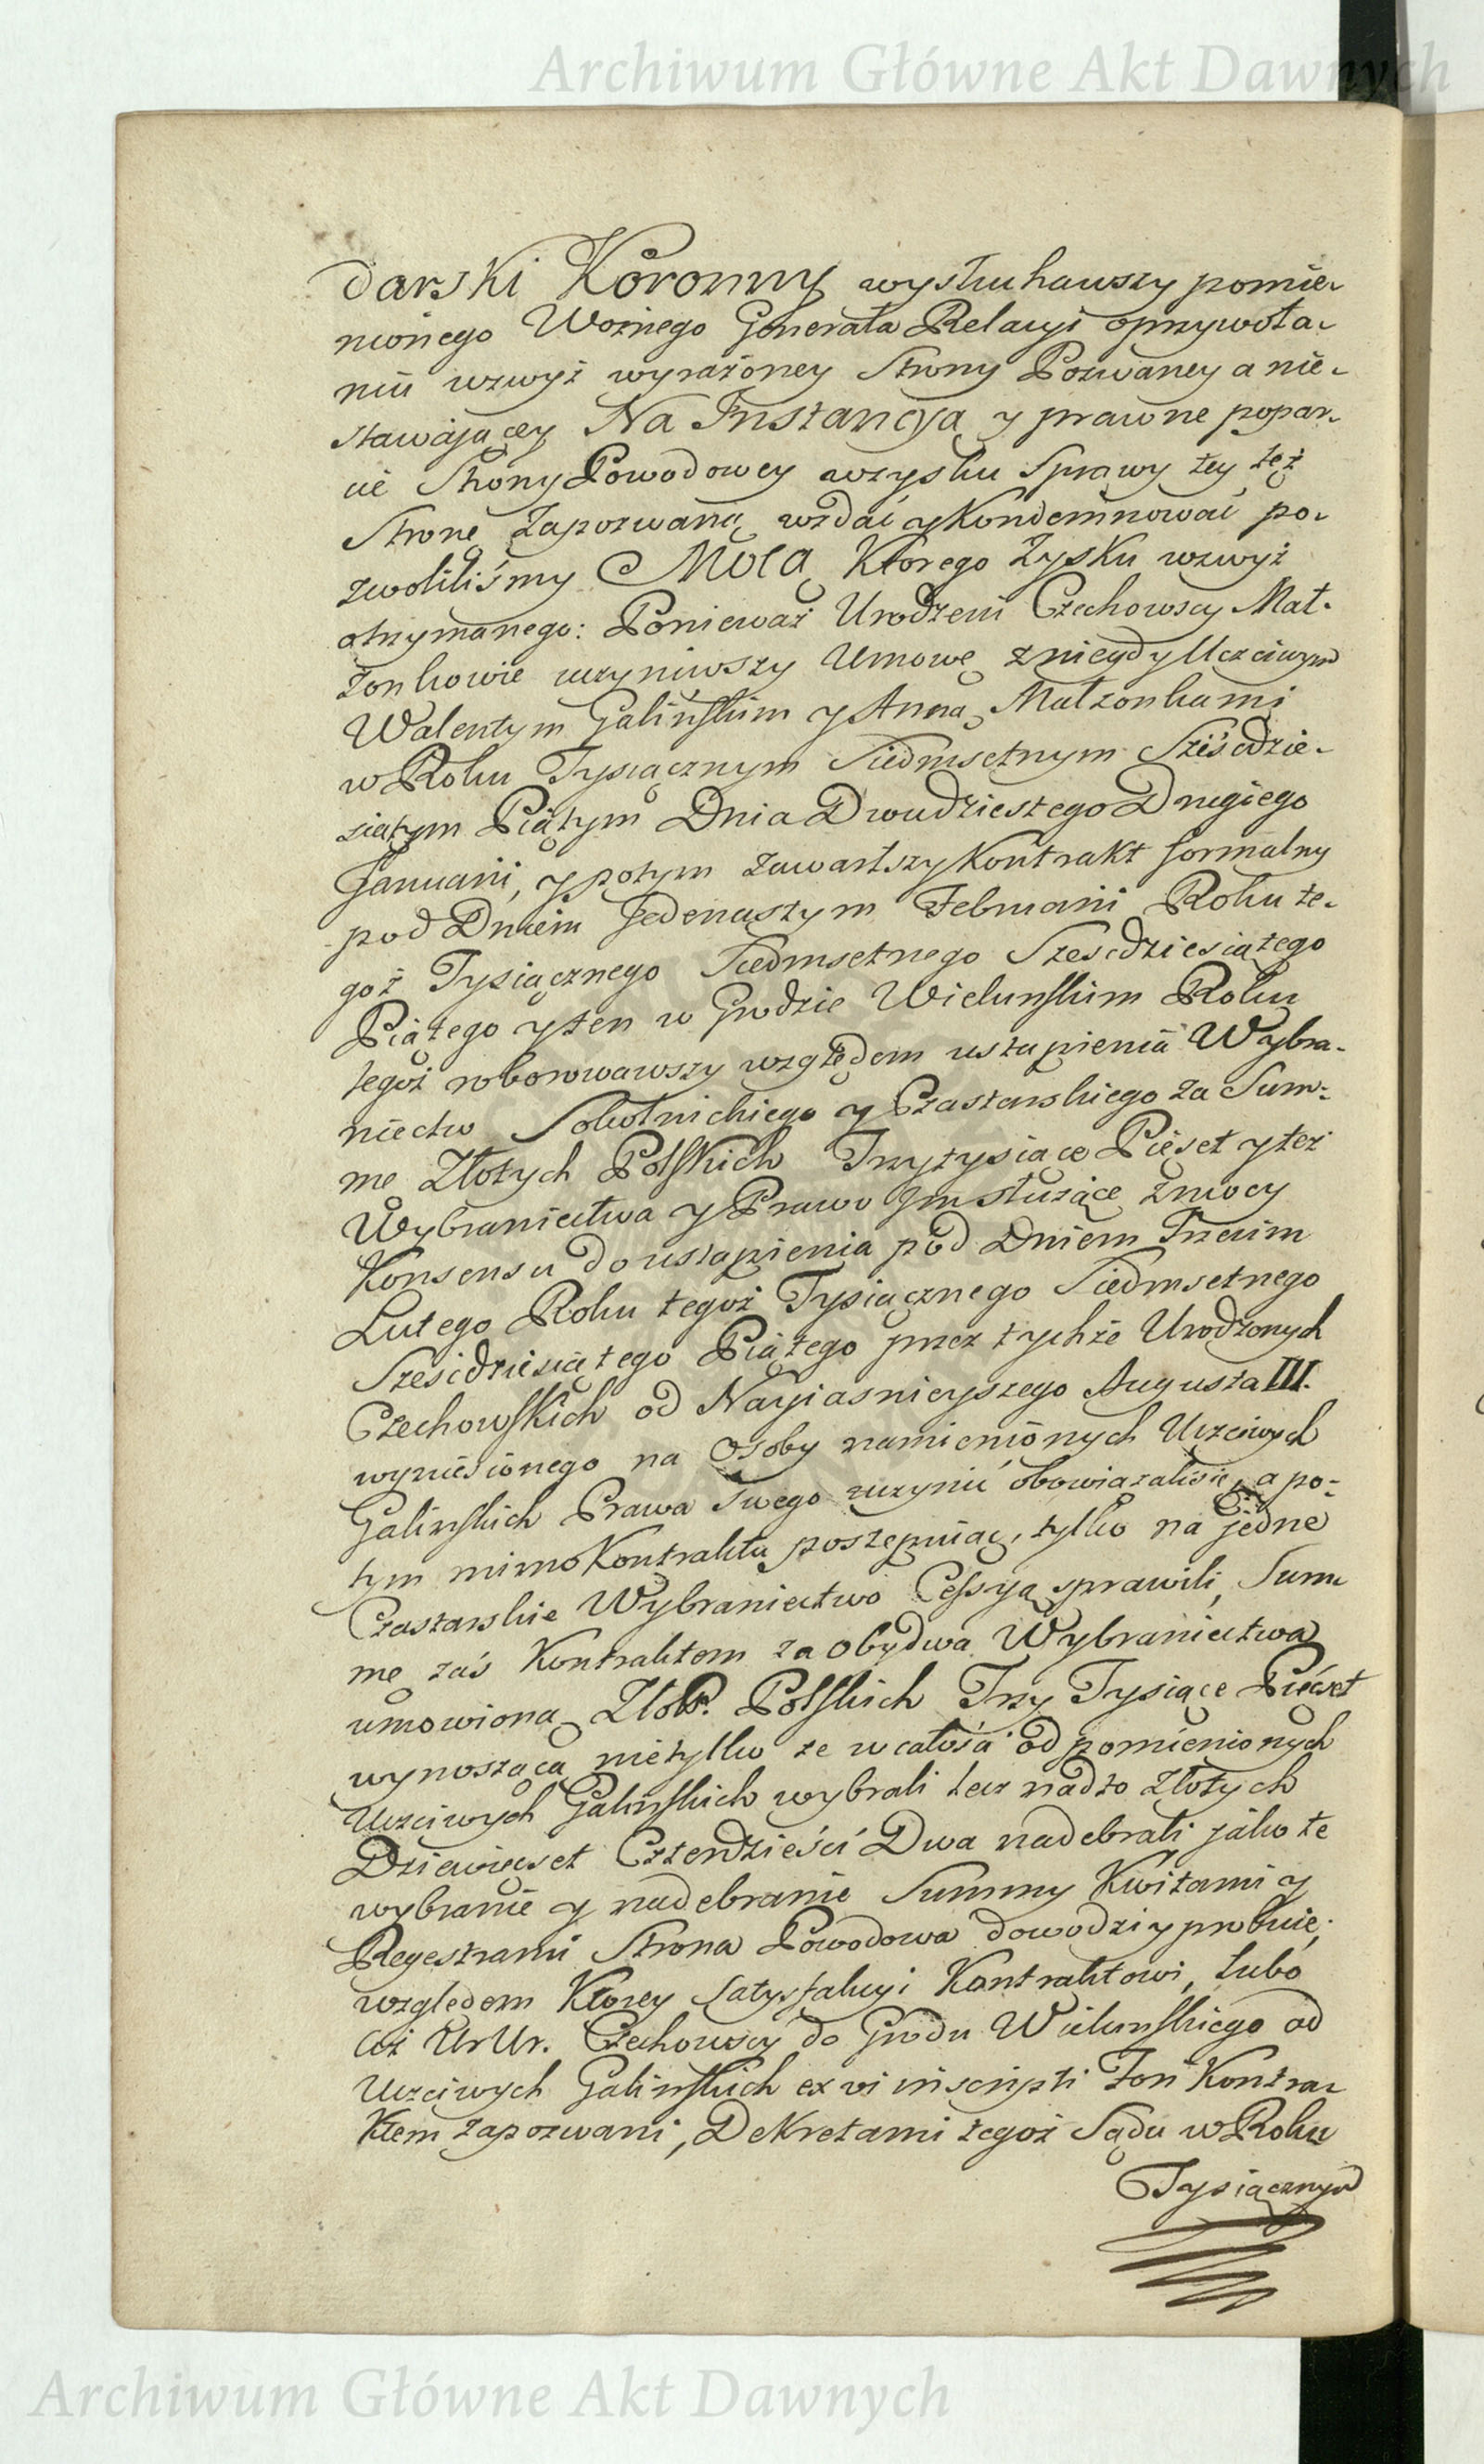 Archiwum Główne Akt Dawnych
darski Koronny wysłuchawszy pomie-
nionego Woźnego Generała Relacyi oprzywoła-
niu wzwyż wyrażoney Strony Pozwaney a nie-
stawaiącey Na Instancyą y prawne popar-
cie Strony Powodowey wzysku Sprawy tey też
Stronę Zapozwaną wzdać y Kondemnować po-
zwoliliśmy Mocą Ktorego Zysku wzwyż
otrzymanego: Ponieważ Urodzeni Czechowscy Mał-
żonkowie uczyniwszy Umowę zniegdy Uczciwym
Walentym Galinskim y Anną Małzonkami
w Roku Tysiącznym Siedmsetnym Sześcdzie-
siątym Piątym Dnia Dwudziestego Drugiego
Januarii, y potym zawartszy Kontrakt formalny
pod Dniem Jedenastym Februarii Roku te-
goż Tysiącznego Siedmsetnego Szescdziesiątego
Piątego y ten w Grodzie Wielunskim Roku
tegoż roborowawszy względem ustąpienia Wybra-
niectw Sokolnickiego y Czastarskiego za Sum-
mę Złotych Polskich Trzytysiące Pięset y też
Wybraniectwa y Prawo Jm służące zmocy
Konsensu do ustąpienia pod Dniem Trzecim
Lutego Roku tegoż Tysiącznego Siedmsetnego
Sześcdziesiątego Piątego przez tychże Urodzonych
Czechowskich od Nayiasnieyszego Augusta III.
wyniesionego na Osoby namienionych Uczciwych
Galinskich Prawa Swego uczynić obowiązalisię, a po-
tym mimo Kontraktu postępuiąc, tylko na jedne
Czastarskie Wybraniectwo Cessyą sprawili, Sum-
mę zaś Kontraktem za obydwa Wybraniectwa
umowioną Złotr. Polskich Trzy Tysiące Pięćset
wynoszącą nietylko ze wcałości od pomienionych
Uczciwych Galinskich wybrali lecz nadto Złotych
Dziewięcset Czterdzieści Dwa nadebrali jako te
wybranie y nadebranie Summy Kwitami y
Regestrami Strona Powodowa dowodzi y probuie,
względem Ktorey Satysfakcyi Kontraktowi, lubo
ciż UrUr. Czechowscy do Grodu Wielunskiego od
Uczciwych Galinskich ex vi inscripti Fori Kontra-
ktem zapozwani, Dekretami tegoż Sądu w Roku
Tysiącznym
Archiwum Główne Akt Dawnych